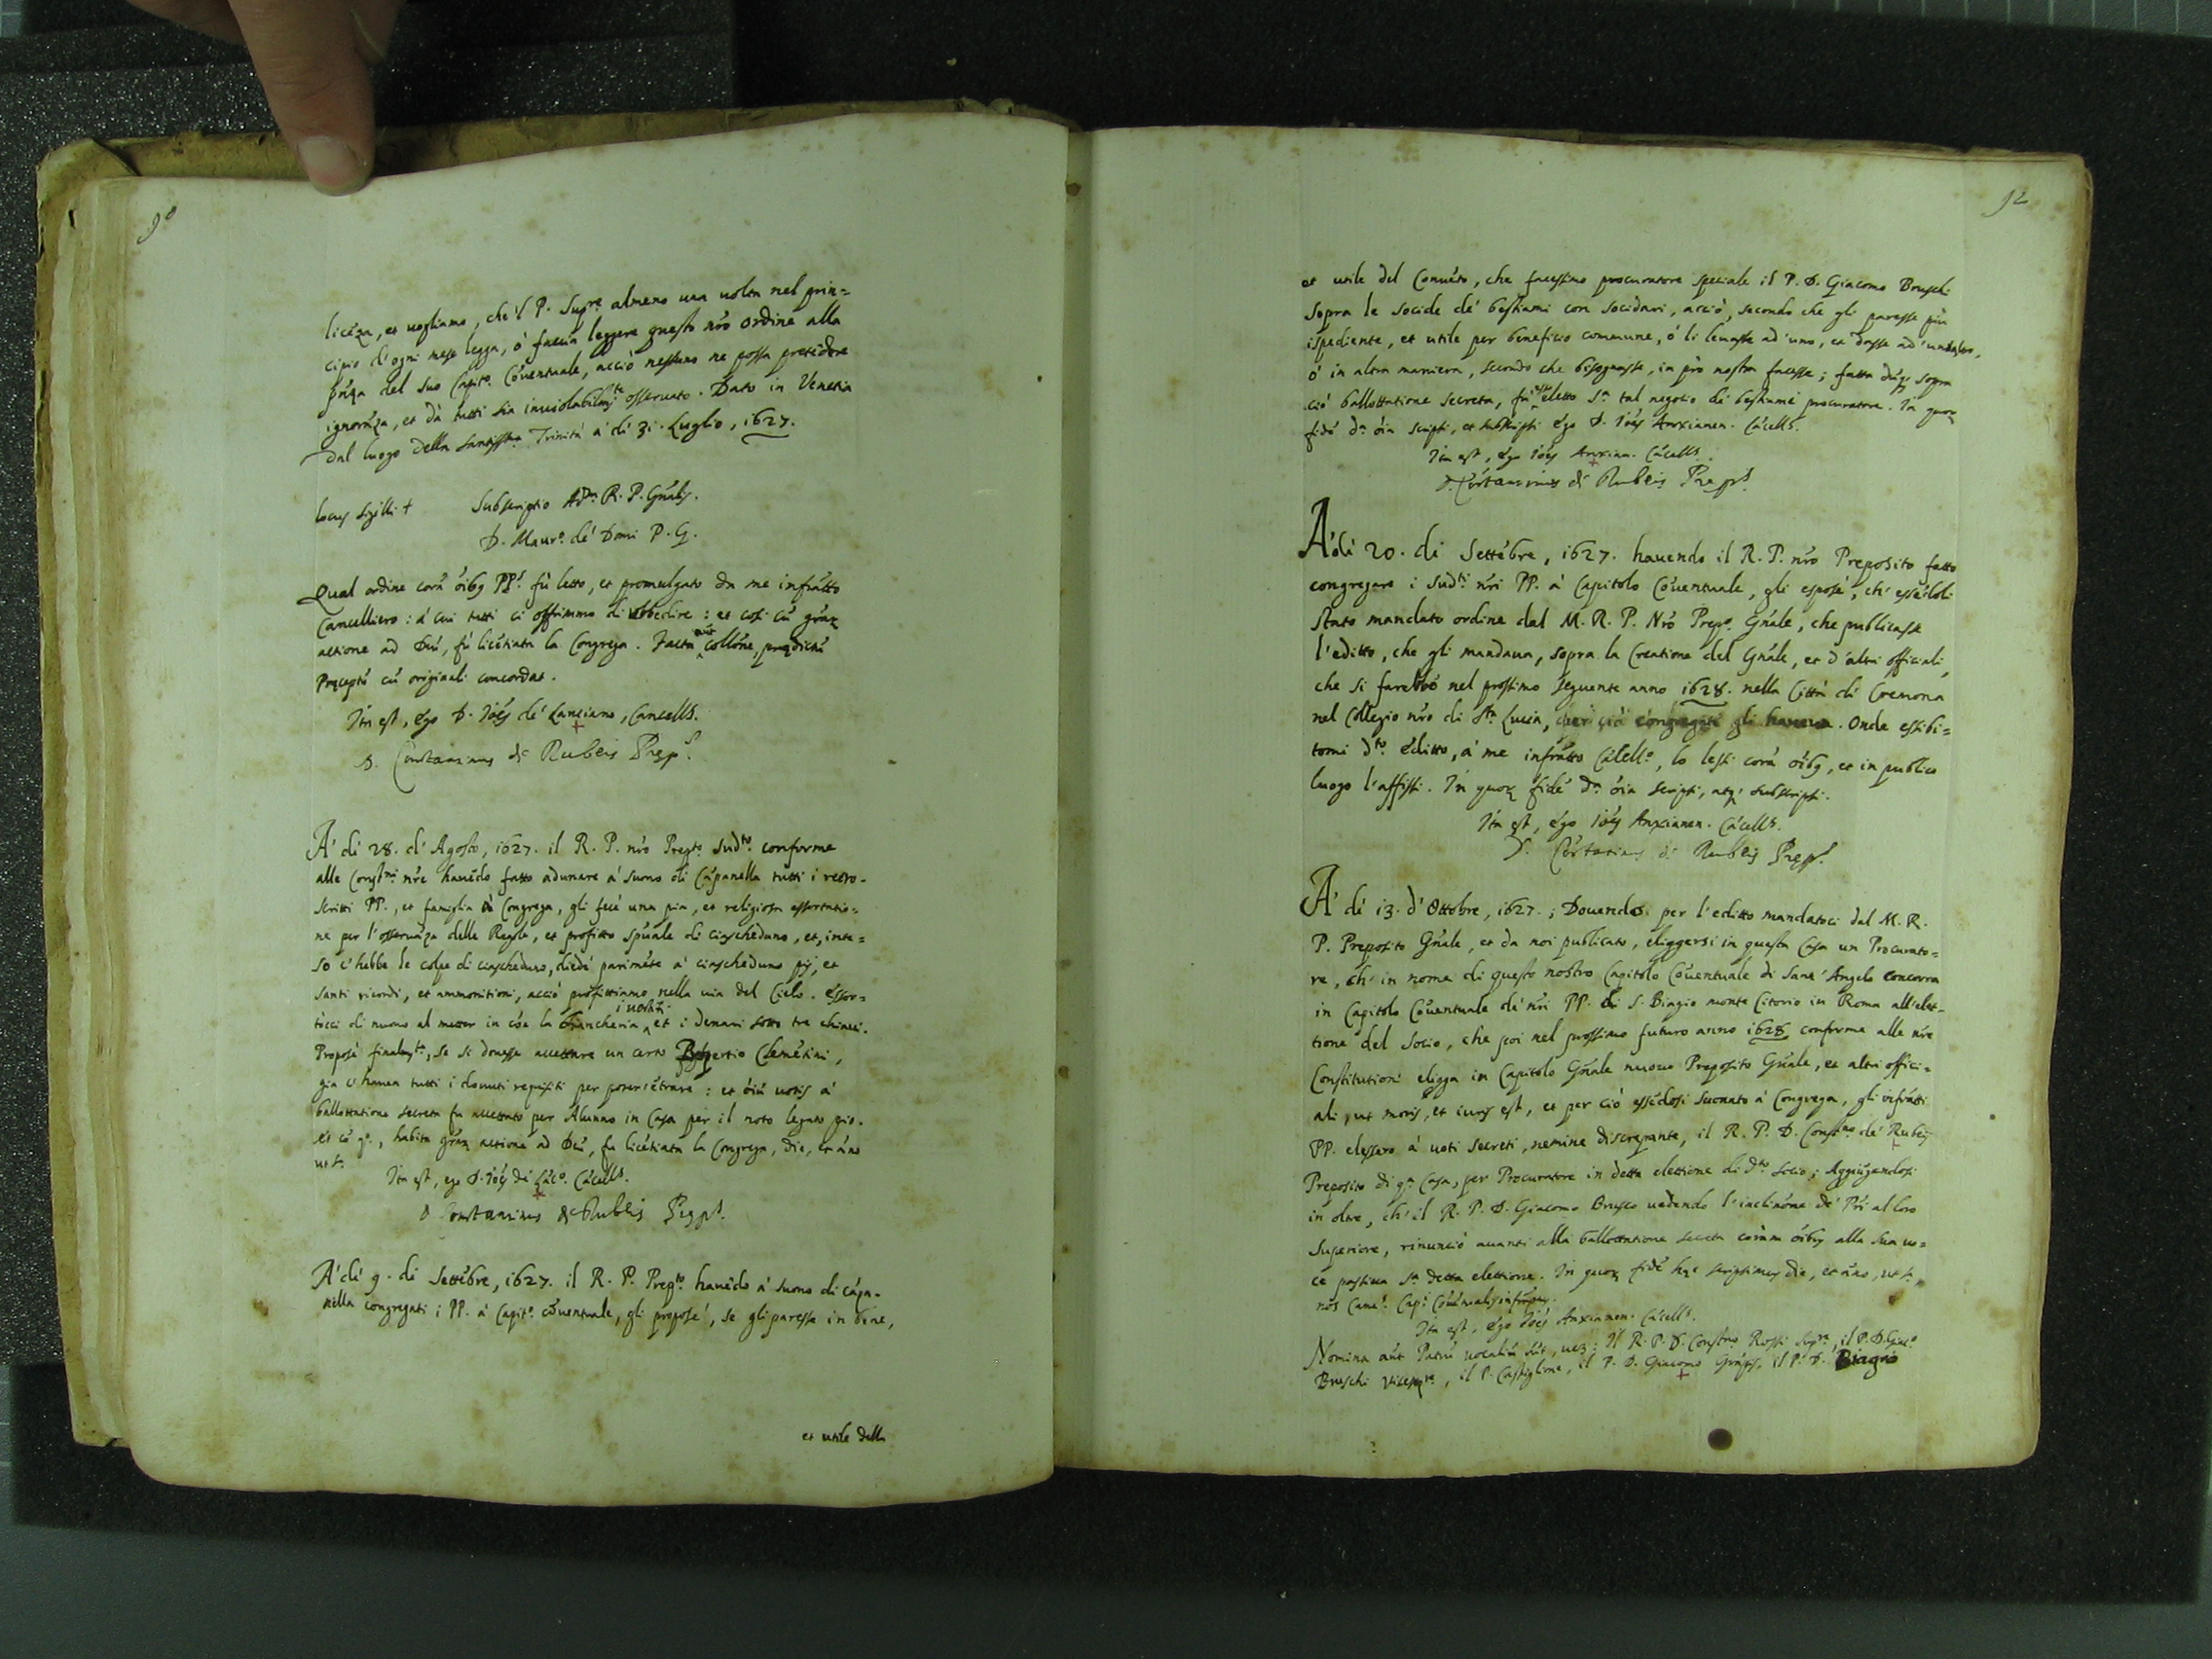 90
licẽza, et uogliamo, che'l P. Supre almeno una uolta nel prin=
cipio d'ogni mese legga, ò faccia leggere questo nr̃o ordine alla
pñza del suo Capito. Cõuentuale, acciò nessuno ne possa pretẽdere
ignorãza, et dà tutti sia inuiolabilmte osseruato. Dato in Venetia
dal luogo della santissima Trinità à dì 31. Luglio, 1627.
locus sigilli + Subscriptio Adm. R. P. Gñalis.
D. Mauro. de' Domi P. G.
Qual ordine corã õibus PP. fù letto, et promulgato da me infratto
Cancelliero: à cui tutti ci offrimmo di obbedire: et cosi cũ grãr
actione ad Deũ, fù licẽtiata la Congrega. Facta aũt collõne, prędictũ
Pręceptũ cũ originali concordat.
Ita est, Ego D. Ioẽs de' Lanciano, Cancells.
D. Constantinus de Rubeis Pręp.s
A' dì 28. d'Agosto, 1627. il R. P. nr̃o Prepto. sudto. conforme
alle Constni. nr̃e hauẽdo fatto adunare à suono di Cãpanella tutti i retro-
scritti PP., et famiglia à Congrega, gli fece una pia, et religiosa essortatio=
ne per l'osseruãza delle Regole, et profitto spũale di ciascheduno, et, inte=
so c'hebbe le colpe di ciascheduno, diede parimẽte à ciascheduno pij, et
santi ricordi, et ammonitioni, acciò profittiamo nella uia del Cielo. Essor=
tocci di nuouo al metter in cõe la biancheria, et i denari sotto tre chiaui.
i uestiti
Propose finalmte, se si douesse accettare un certo Clemẽtini,
gia c'hauea tutti i douuti requisiti per poter' ẽtrare: et õiũ uotis à
ballottatione secreta fu accettato per Alunno in Casa per il noto legato pio.
Et cõ qo., habita grãr actione ad Deũ, fu licẽtiata la Congrega, die, et ãno
ut sa.
Ita est, ego D. Ioẽs de' Lãco. Cãcells.
D Constantinus de Rubeis Pręps.
A' dì 9. di Settẽbre, 1627. il R. P. Prepto hauẽdo à suono di cãpa-
nella congregati i PP. à Capito. cõuentuale, gli propose, se gli paresse in bene,
et utile della
92
et utile del Conuẽto, che facessimo procuratore speciale il P. D. Giacomo Bruschi
sopra le socide de' bestiami con socidari, acciò, secondo che gli paresse più
ispediente, et utile per beneficio commune, ò li leuasse ad uno, et dasse ad un'altro,
ò in altra maniera, secondo che bisognasse, in prò nostra facesse; fatta dũq; sopra
ciò ballottatione secreta, fù esso eletto sa. tal negocio de' bestiame procuratore. In quor
fidẽ da. õia scripsi, et subscripsi Ego D. Ioẽs Anxianen. Cãcells.
Ita est, Ego Ioẽs Anxian. Cãcells.
D. Cõstantinus de Rubeis Pręps.
A' dì 20. di Settẽbre, 1627. hauendo il R. P. nr̃o Preposito fatto
congregare i sudti. nr̃i PP. à Capitolo Cõuentuale, gli espose, ch'essẽdoli
stato mandato ordine dal M. R. P. Nr̃o Prepo. Gñale, che publicasse
l'editto, che gli mandaua, sopra la Creatione del Gñale, et d'altri officiali,
che si farebbe nel prossimo seguente anno 1628. nella Città di Cremona
nel Collegio nr̃o di Sta. Lucia, per ciò congregati gli haueua. Onde essibi=
tomi dto. Editto, à me infratto Cãcello, lo lessi corã õibus, et in publico
luogo l'affissi. In quor fidẽ da. õia scripsi, atq; subscripsi.
Ita est, Ego Ioẽs Anxianen. Cãcells.
D. Cõstantinus de Rubeis Pręps.
A' dì 13. d'Ottobre, 1627.; Douendo per l'editto mandatoci dal M. R.
P. Preposito Gñale, et da noi publicato, eliggersi in questa Casa un Procurato=
re, ch'in nome di questo nostro Capitolo Cõuentuale di Sant'Angelo concorra
in Capitolo Cõuentuale de' nr̃i PP. di S. Biagio monte Citorio in Roma all'elet-
tione del Socio, che poi nel prossimo futuro anno 1628 conforme alle nr̃e
Constitutioni eligga in Capitolo Gñale nuouo Preposito Gñale, et altri offici=
ali, ut moris, et iuris est, et per ciò essẽdosi suonato à Congrega, gli infratti
PP. elessero à uoti secreti, nemine discrepante, il R. P. D. Constno de' Rubeis
Preposito di qa. Casa, per Procuratore in detta elettione di dto. socio; Aggiũgendosi
in oltre, ch'il R. P. D. Giacomo Brusco uedendo l'inclinõne de' Pri al loro
Superiore, rinunciò auanti alla ballottatione secreta corãm õibus alla sua uo=
ce passiua sa. detta elettione. In quor fidẽ hęc scripsimus die, et ãno, ut sa.,
nos Cance. Capi. Cõuentualis
Ita est, Ego Ioẽs Anxianen. Cãcells.
Nomina aũt Patrũ uocaliũ sũt, uez: Il R. P. D. Constno Rossi Supre, il P. D. Giaco
Bruschi Vicepre, il P. Castiglione, il P. D. Giacomo il P. D. Biagio